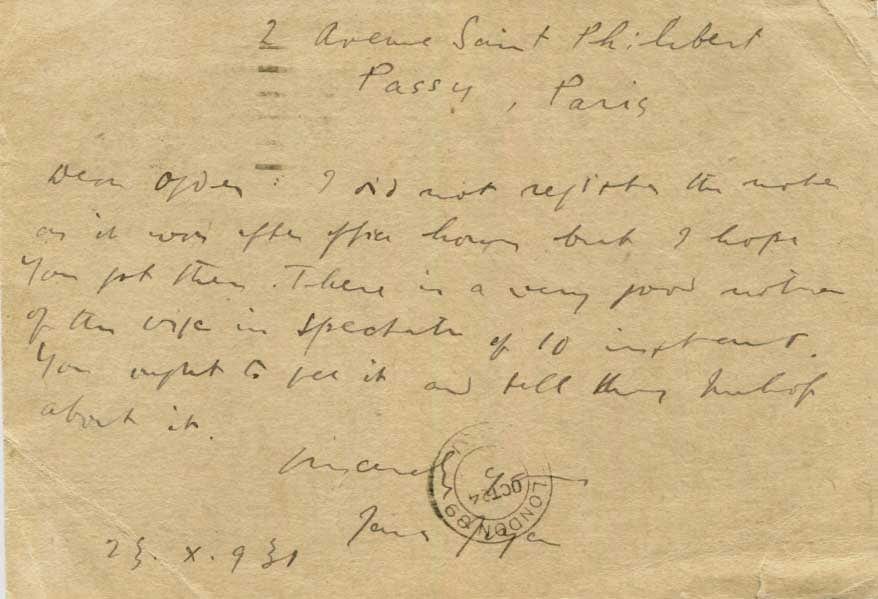 2 Avenue Saint Philibert
Passy, Paris
Dear Ogden: I did not register the notes
as it was after office hours but I hope
you got them. There is a very good notice
of the disc in Spectator of 10 instant.
You ought to see it and tell Imhof
about it.
Sincerely yours
James Joyce
23. X. 931
LONDON
OCT 24